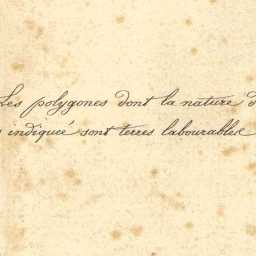 Les polygones dont la nature
indiqueé sont terres labourables